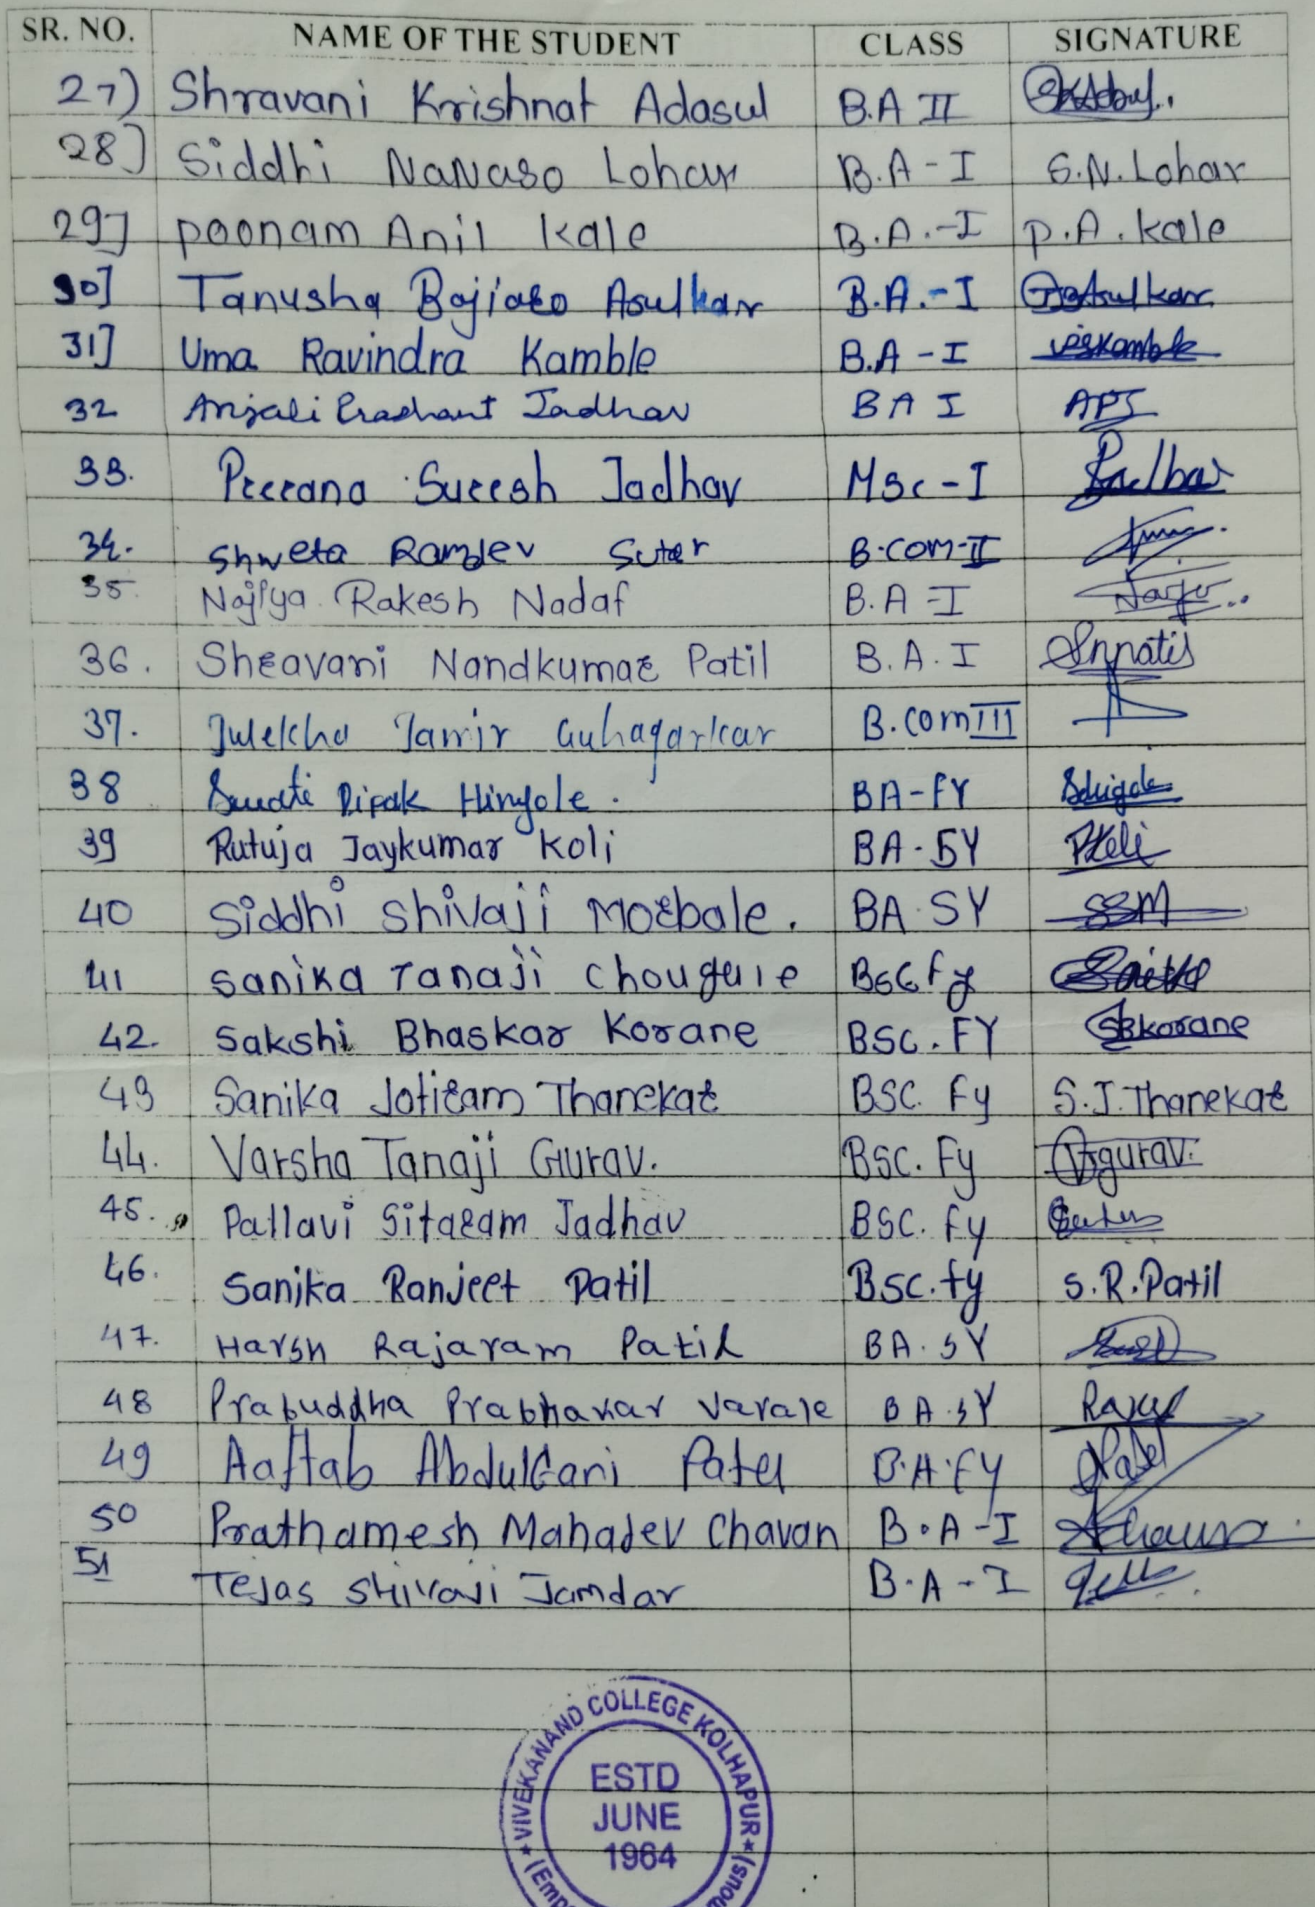 SR. NO. NAME OF THE STUDENT CLASS SIGNATURE
27) Shravani Krishnat Adasul B.A II
28] Siddhi Nanaso Lohar B.A - I S.N. Lohar
29] poonam Anil kale B.A.-I P.A. kale
30] Tanusha Bajiaso Asulkar B.A.-I Asulkar
31] Uma Ravindra Kamble B.A - I kamble
32 Anjali Prashant Jadhav BA I APJ
33. Prerana Suresh Jadhav Msc - I Jadhav
34. Shweta Ramdev Suter B.com-II
35 Najiya Rakesh Nadaf B.A -I
36. Shravani Nandkumar Patil B.A. I Snpatil
37. Julekha Jamir Guhagarkar B.com III
38 Swati Dipak Hingole. BA-FY
39 Rutuja Jaykumar Koli BA - SY Rkoli
40 Siddhi Shivaji Morbale. BA SY SSM
41 Sanika Tanaji chougule BSC fy
42. Sakshi Bhaskar Korane BSC. FY SBkorane
43 Sanika Jotiram Thanekar BSC. Fy S.J. Thanekar
44. Varsha Tanaji Gurav. BSC. Fy VTgurav.
45. Pallavi Sitaram Jadhav BSC. fy
46. Sanika Ranjeet Patil BSC. fy S.R. Patil
47. Harsh Rajaram Patil BA. SY
48 Prabuddha Prabhakar Varale BA.SY
49 Aaftab AbdulGani Patel B.A.FY Patel
50 Prathamesh Mahadev Chavan B.A-I
51 Tejas Shivaji Jamdar B.A - I
VIVEKANAND COLLEGE KOLHAPUR
ESTD
JUNE
1964